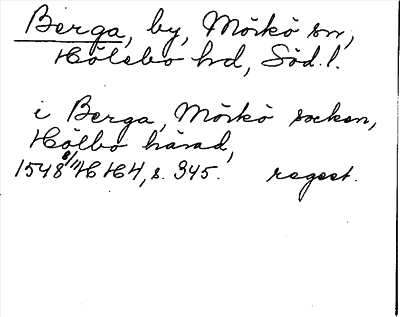 Berga, by, Mörkö sn,
Hölebo hd, Söd.l.
i Berga, Mörkö socken,
Hölbo härad,
1548 8/11 HH4, s. 345. regest.